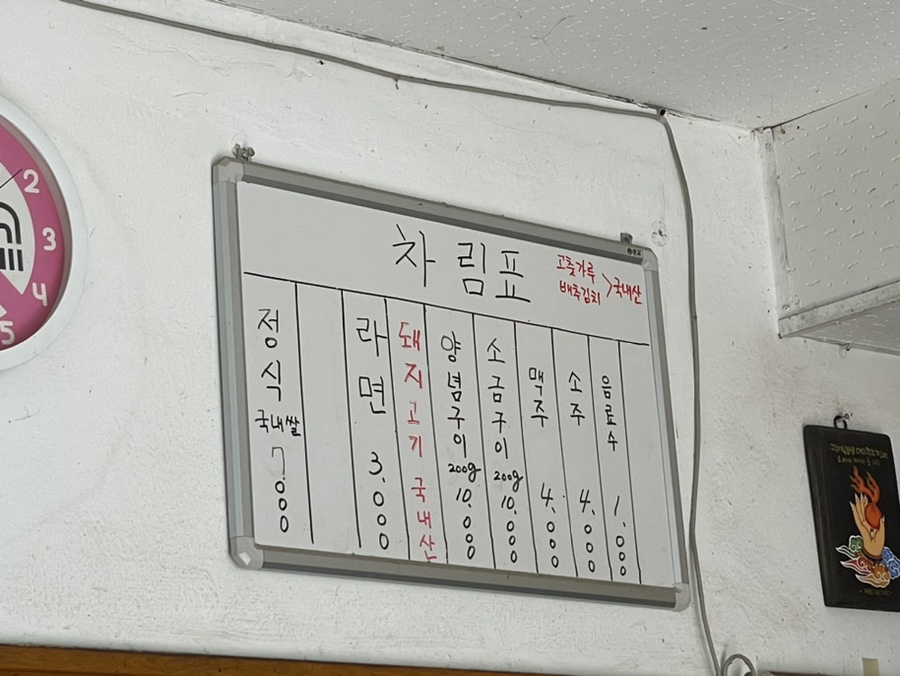 차림표
고춧가루
배추김치 > 국내산
정식 국내쌀 7.000
라면 3.000
돼지고기 국내산
양념구이 200g 10.000
소금구이 200g 10.000
맥주 4.000
소주 4.000
음료수 1.000
2
3
4
5